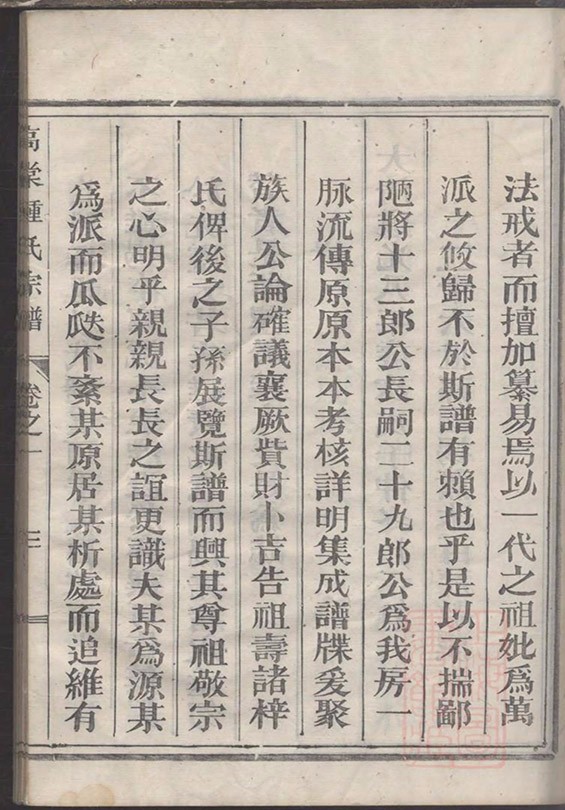 法戒者而擅加纂易焉以一代之祖妣爲萬
派之攸歸不於斯譜有賴也乎是以不揣鄙
陋將十三郎公長嗣二十九郎公爲我房一
脉流傳原原本本考核詳明集成譜牒爰聚
族人公論確議襄厥貲財卜吉告祖壽諸梓
氏俾後之子孫展覽斯譜而興其尊祖敬宗
之心明乎親親長長之誼更識夫某爲源某
爲派而瓜瓞不紊某原居某析處而追維有
高棠鍾氏宗譜 卷之一 三